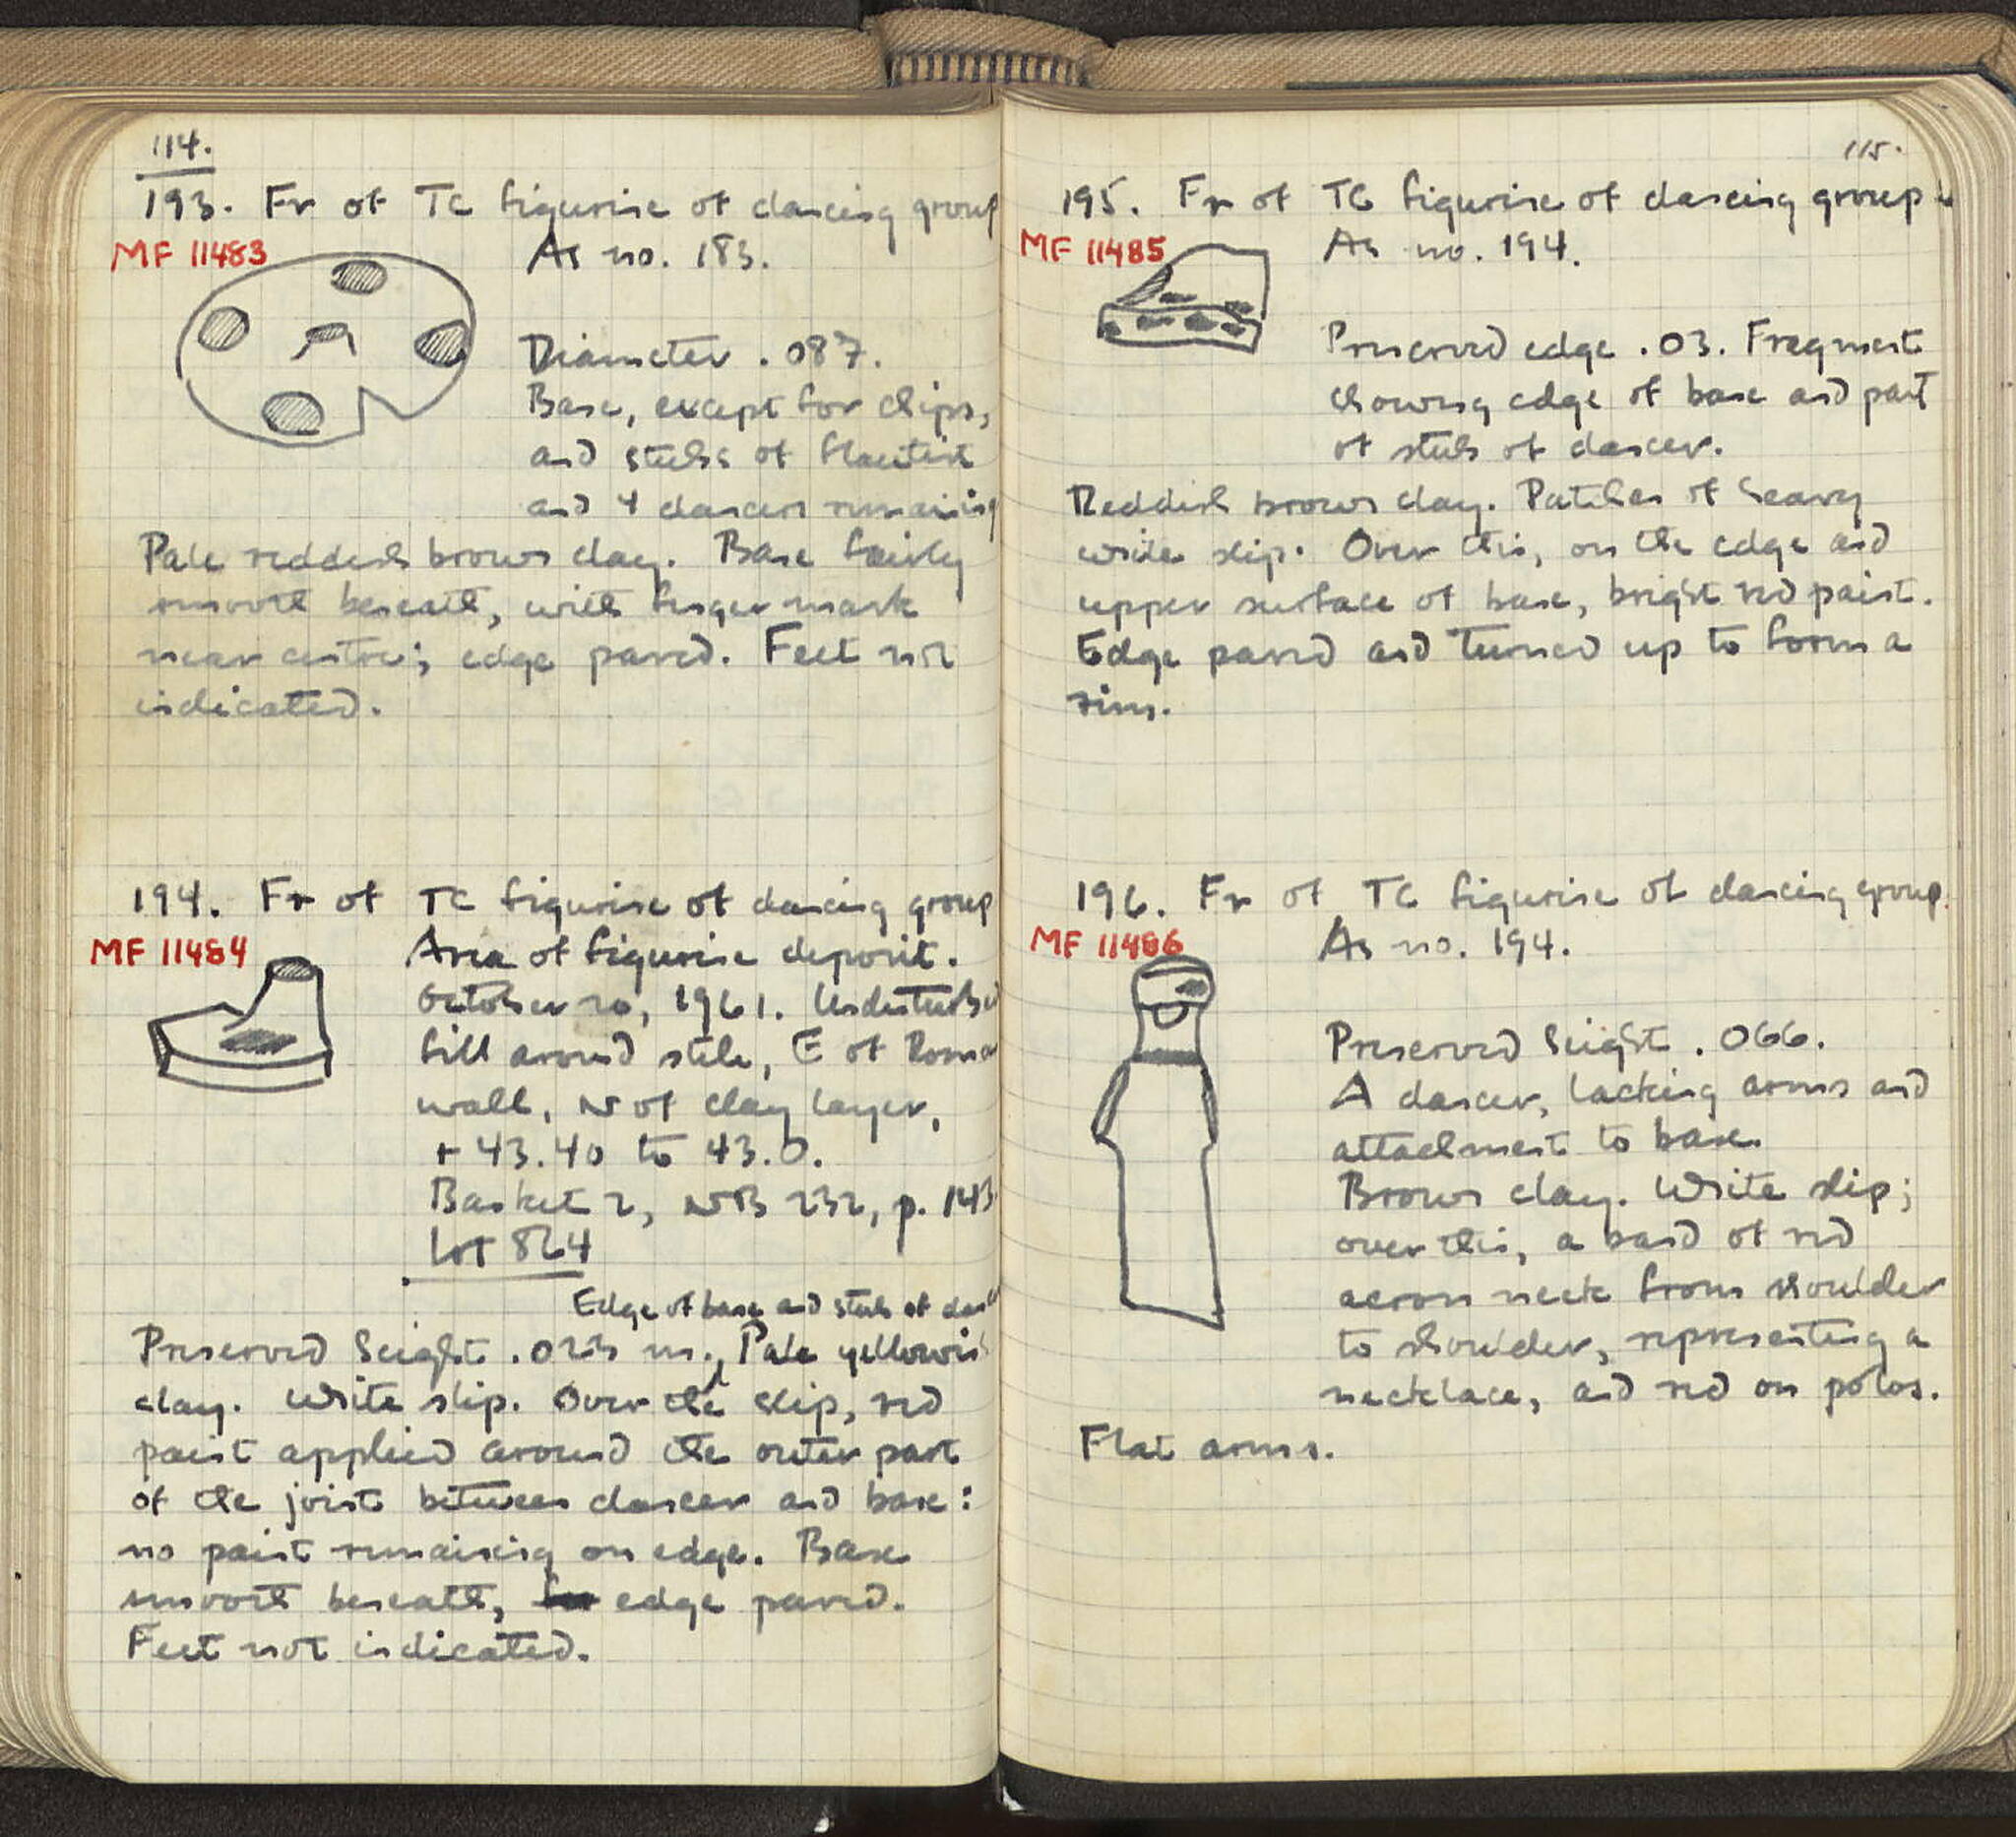 114.
193. Fr of TC figurine of dancing group
MF 11483
As no. 183.
Diameter .087.
Base, except for chips,
and stubs of flautist
and 4 dancers remaining
Pale reddish brown clay. Base fairly
smooth beneath, with finger mark
near centre; edge pared. Feet not
indicated.
194. Fr of TC figurine of dancing group
MF 11484
Area of figurine deposit.
October 20, 1961. Undisturbed
fill around stele, E of Roman
wall, N of clay layer,
+ 43.40 to 43.0.
Basket 2, NB 232, p. 143
Lot 864
Edge of base and stub of dancer
Preserved height .023 m., Pale yellowish
clay. White slip. Over the slip, red
paint applied around the outer part
of the joint between dancer and base:
no paint remaining on edge. Base
smooth beneath, edge pared.
Feet not indicated.
115.
195. Fr of TC figurine of dancing group
MF 11485
As no. 194.
Preserved edge .03. Fragment
showing edge of base and part
of stub of dancer.
Reddish brown clay. Patches of heavy
white slip. Over this, on the edge and
upper surface of base, bright red paint.
Edge pared and turned up to form a
rim.
196. Fr of TC figurine of dancing group.
MF 11486
As no. 194.
Preserved height .066.
A dancer, lacking arms and
attachment to base.
Brown clay. White slip;
over this, a band of red
across neck from shoulder
to shoulder, representing a
necklace, and red on polos.
Flat arms.